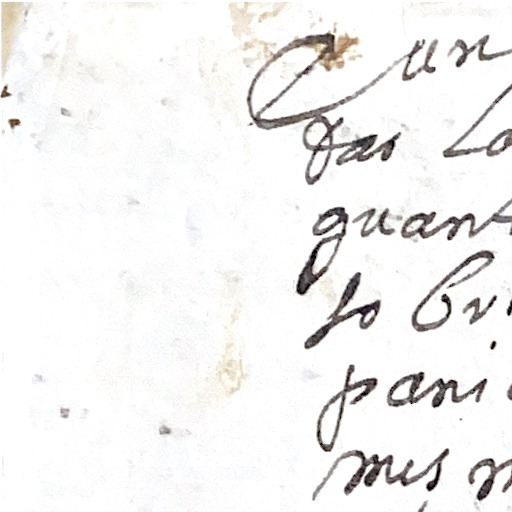 Cun
das La
quant
so Cri
pani
mes m